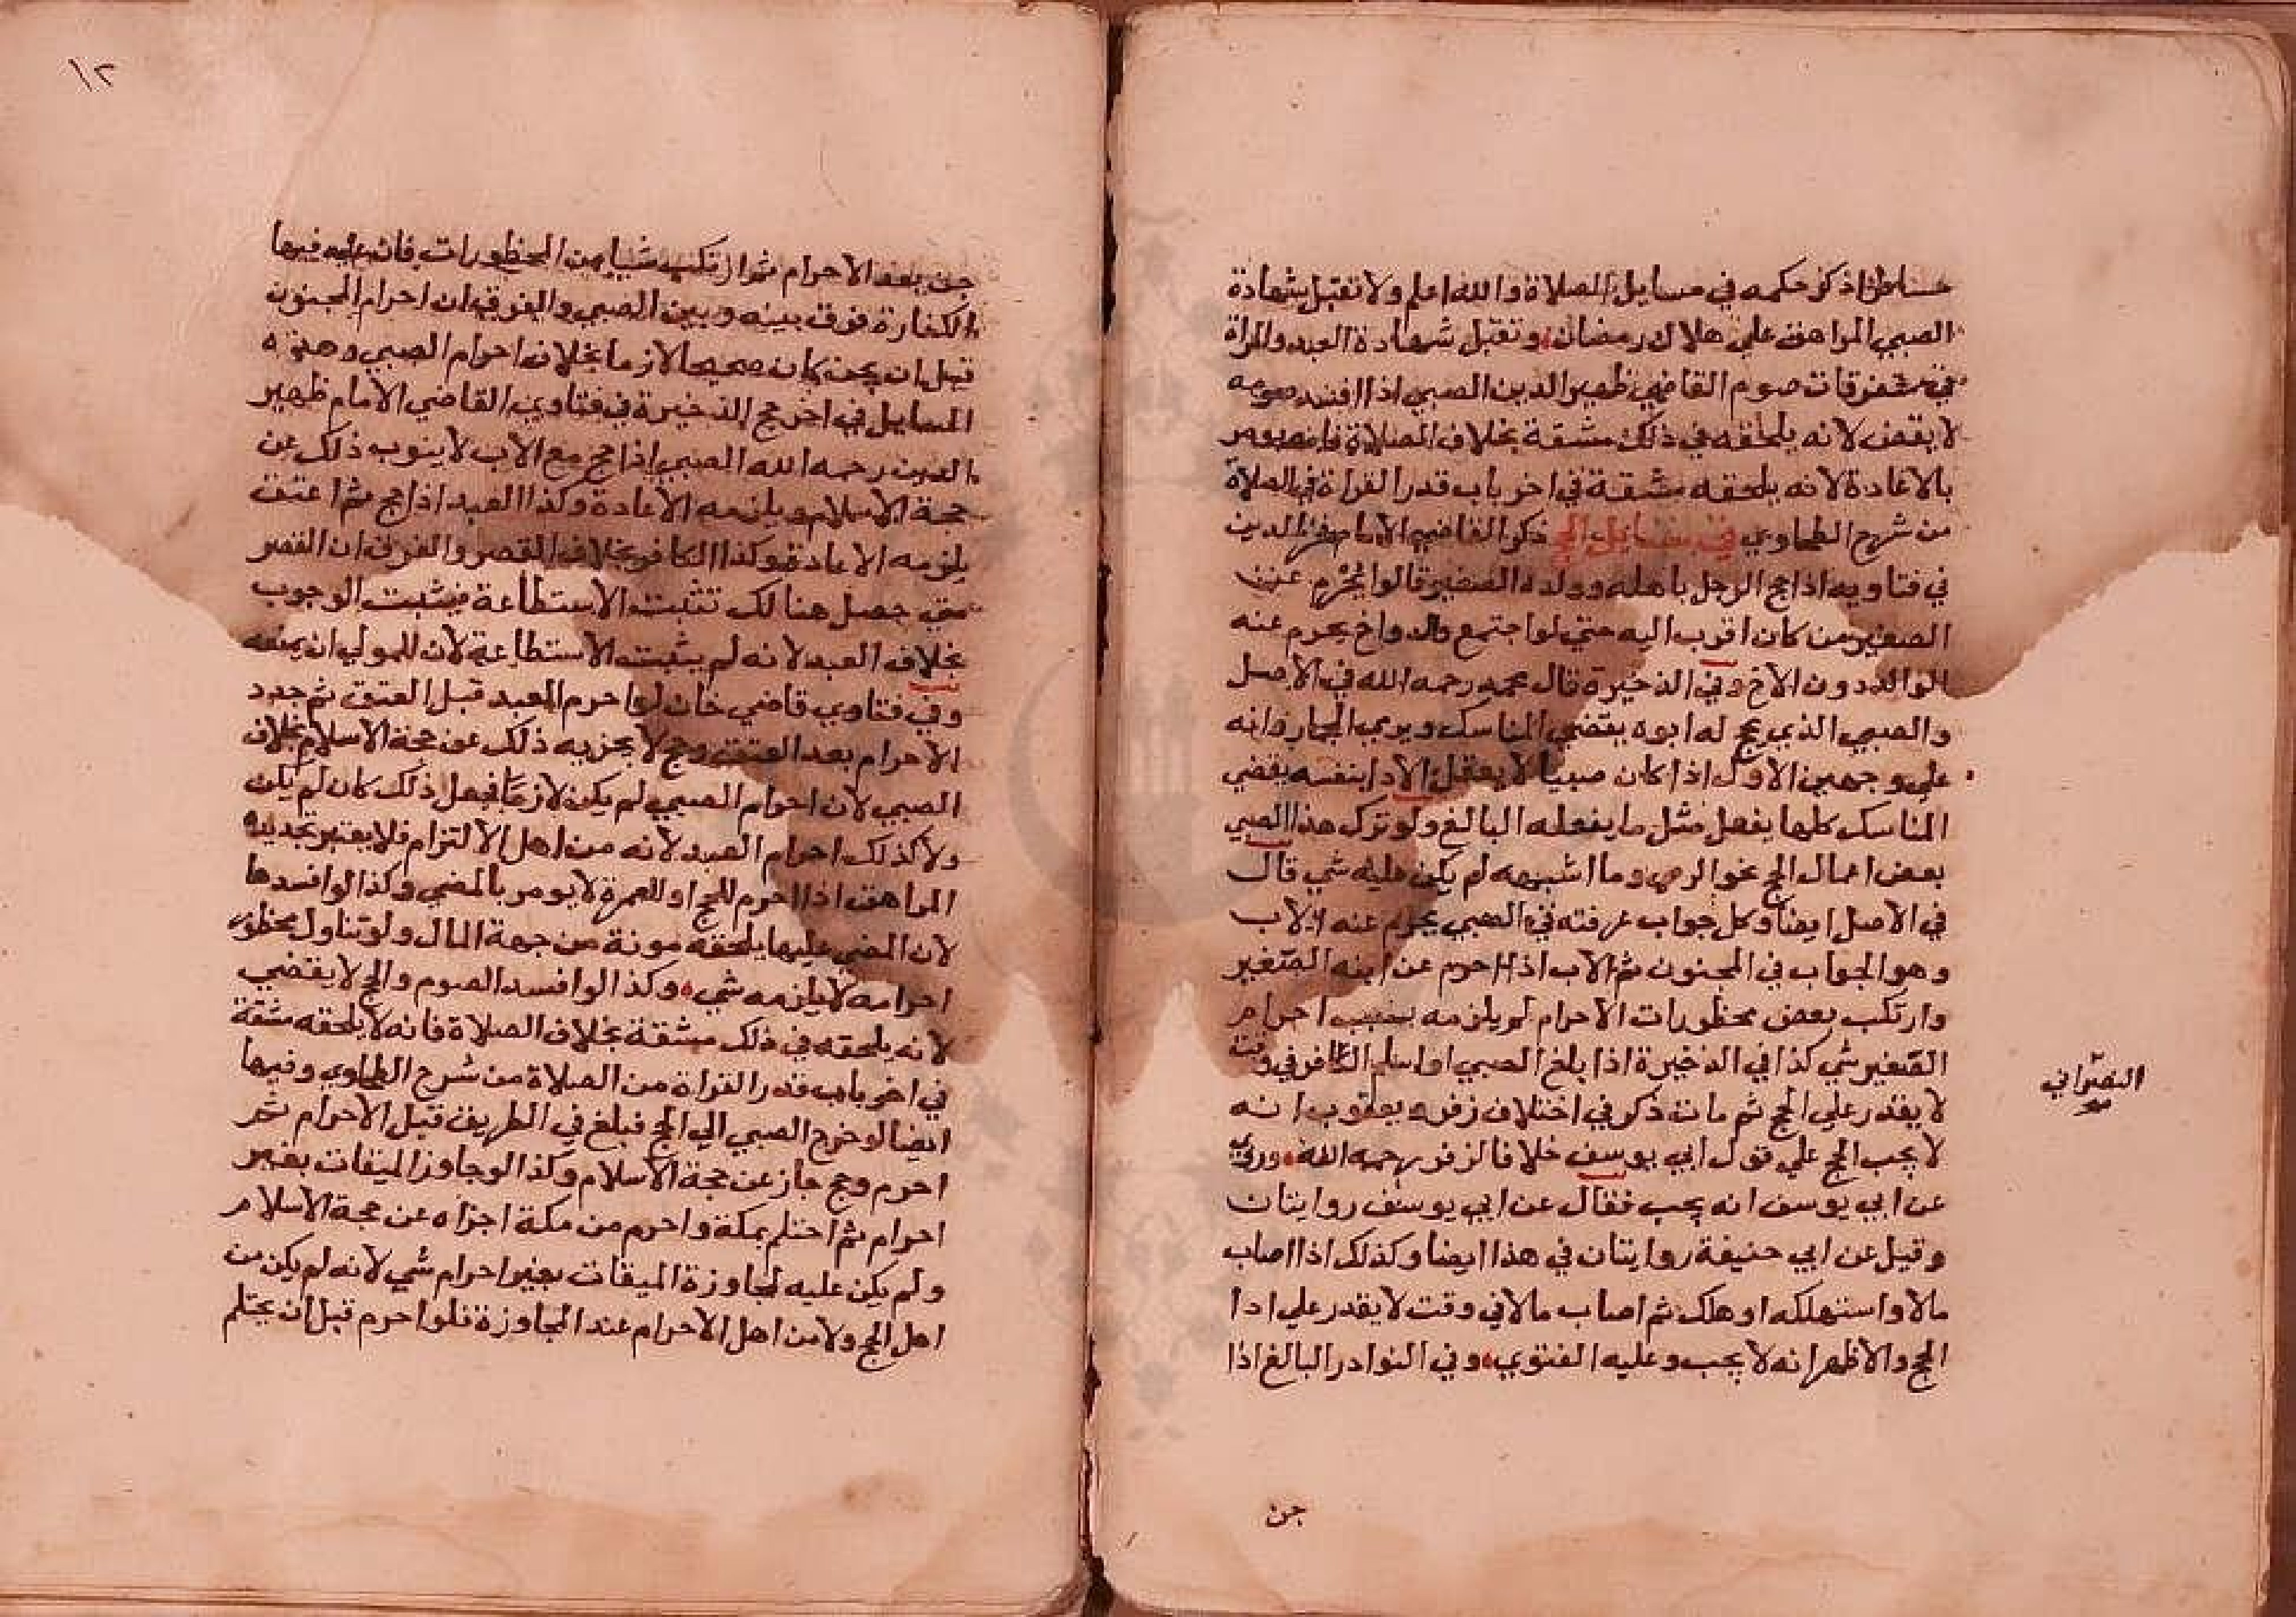 حسناطرا ذكر حكمه في مسايل الصلاة والله اعلم ولا تقبل شهادة
الصبي المراهق على هلال رمضان وتقبل شهادة العبد والمراة
في متفرقات صوم القاضي ظهير الدين الصبي اذا افسد صومه
لا يقضى لانه يلحقه في ذلك مشقة بخلاف الصلاة فانه يومر
بالاعادة لانه يلحقه مشقة في اخر باب قدر القراة في الصلاة
من شرح الطحاوي في مسايل الحج ذكر القاضي الامام فخر الدين
في فتاويه اذا حج الرجل باهله وولده الصغير قالوا يحرم عن
الصغير من كان اقرب اليه حتى لو اجتمع والد واخ يحرم عنه
الوالد دون الاخ وفي الذخيرة قال محمد رحمه الله في الاصل
والصبي الذي يحج له ابوه يقضي المناسك ويرمي الجمار وانه
علي وجهين الاول اذا كان صبيا لا يعقل الادا بنفسه يقضي
المناسك كلها يفعل مثل ما يفعله البالغ ولو ترك هذا الصبي
بعض اعمال الحج نحو الرمي وما اشبهه لم يكن عليه شي قال
في الاصل ايضا وكل جواب عرفته في الصبي يحرم عنه الاب
وهو الجواب في المجنون ثم الاب اذا احرم عن ابنه الصغير
وارتكب بعض محظورات الاحرام لم يلزمه بسبب احرام
الصغير شي كذا في الذخيرة اذا بلغ الصبي او اسلم الكافر في وقت
لا يقدر علي الحج ثم مات ذكر في اختلاف زفر ويعقوب انه
لا يجب الحج علي قول ابي يوسف خلافا لزفر رحمه الله وروي
عن ابي يوسف انه يجب فقال عن ابي يوسف روايتان
وقيل عن ابي حنيفة روايتان في هذا ايضا وكذلك اذا اصاب
مالا واستهلكه او هلك ثم اصاب مالا في وقت لا يقدر علي ادا
الحج والاظهر انه لا يجب وعليه الفتوي وفي النوادر البالغ اذا
النصراني
جن
١٢
جن بعد الاحرام ثم ارتكب شيا من المحظورات فان عليه فيها
الكفارة فرق بينه وبين الصبي والفرق ان احرام المجنون
قبل ان يجن كان صحيحا لازما بخلاف احرام الصبي وهذه
المسايل في اخر حج الذخيرة في فتاوي القاضي الامام ظهير
الدين رحمه الله الصبي اذا حج مع الاب لا ينوب ذلك عن
حجة الاسلام ويلزمه الاعادة وكذا العبد اذا حج ثم اعتق
يلزمه الاعادة وكذا الكافر بخلاف الفقير والفرق ان الفقير
متى حصل هنالك تثبت الاستطاعة فيثبت الوجوب
بخلاف العبد لانه لم يثبت الاستطاعة لان للمولي ان يمنعه
وفي فتاوي قاضي خان لو احرم العبد قبل العتق ثم جدد
الاحرام بعد العتق وحج لا يجزيه ذلك عن حجة الاسلام بخلاف
الصبي لان احرام الصبي لم يكن لازما فجعل ذلك كان لم يكن
ولا كذلك احرام العبد لانه من اهل الالتزام فلا يعتبر تجديده
المراهق اذا احرم للحج او للعمرة لا يومر بالمضي وكذا لو افسدها
لان المضي عليها يلحقه مونة من جهة المال ولو تناول محظور
احرامه لا يلزمه شي وكذا لو افسد الصوم والحج لا يقضي
لانه يلحقه في ذلك مشقة بخلاف الصلاة فانه لا يلحقه مشقة
في اخر باب قدر القراة من الصلاة من شرح الطحاوي وفيها
ايضا لو خرج الصبي الي الحج فبلغ في الطريق قبل الاحرام ثم
احرم وحج جاز عن حجة الاسلام وكذا لو جاوز الميقات بغير
احرام ثم احتلم بمكة واحرم من مكة اجزاه عن حجة الاسلام
ولم يكن عليه لمجاوزة الميقات بغير احرام شي لانه لم يكن من
اهل الحج ولا من اهل الاحرام عند المجاوزة فلو احرم قبل ان يحتلم